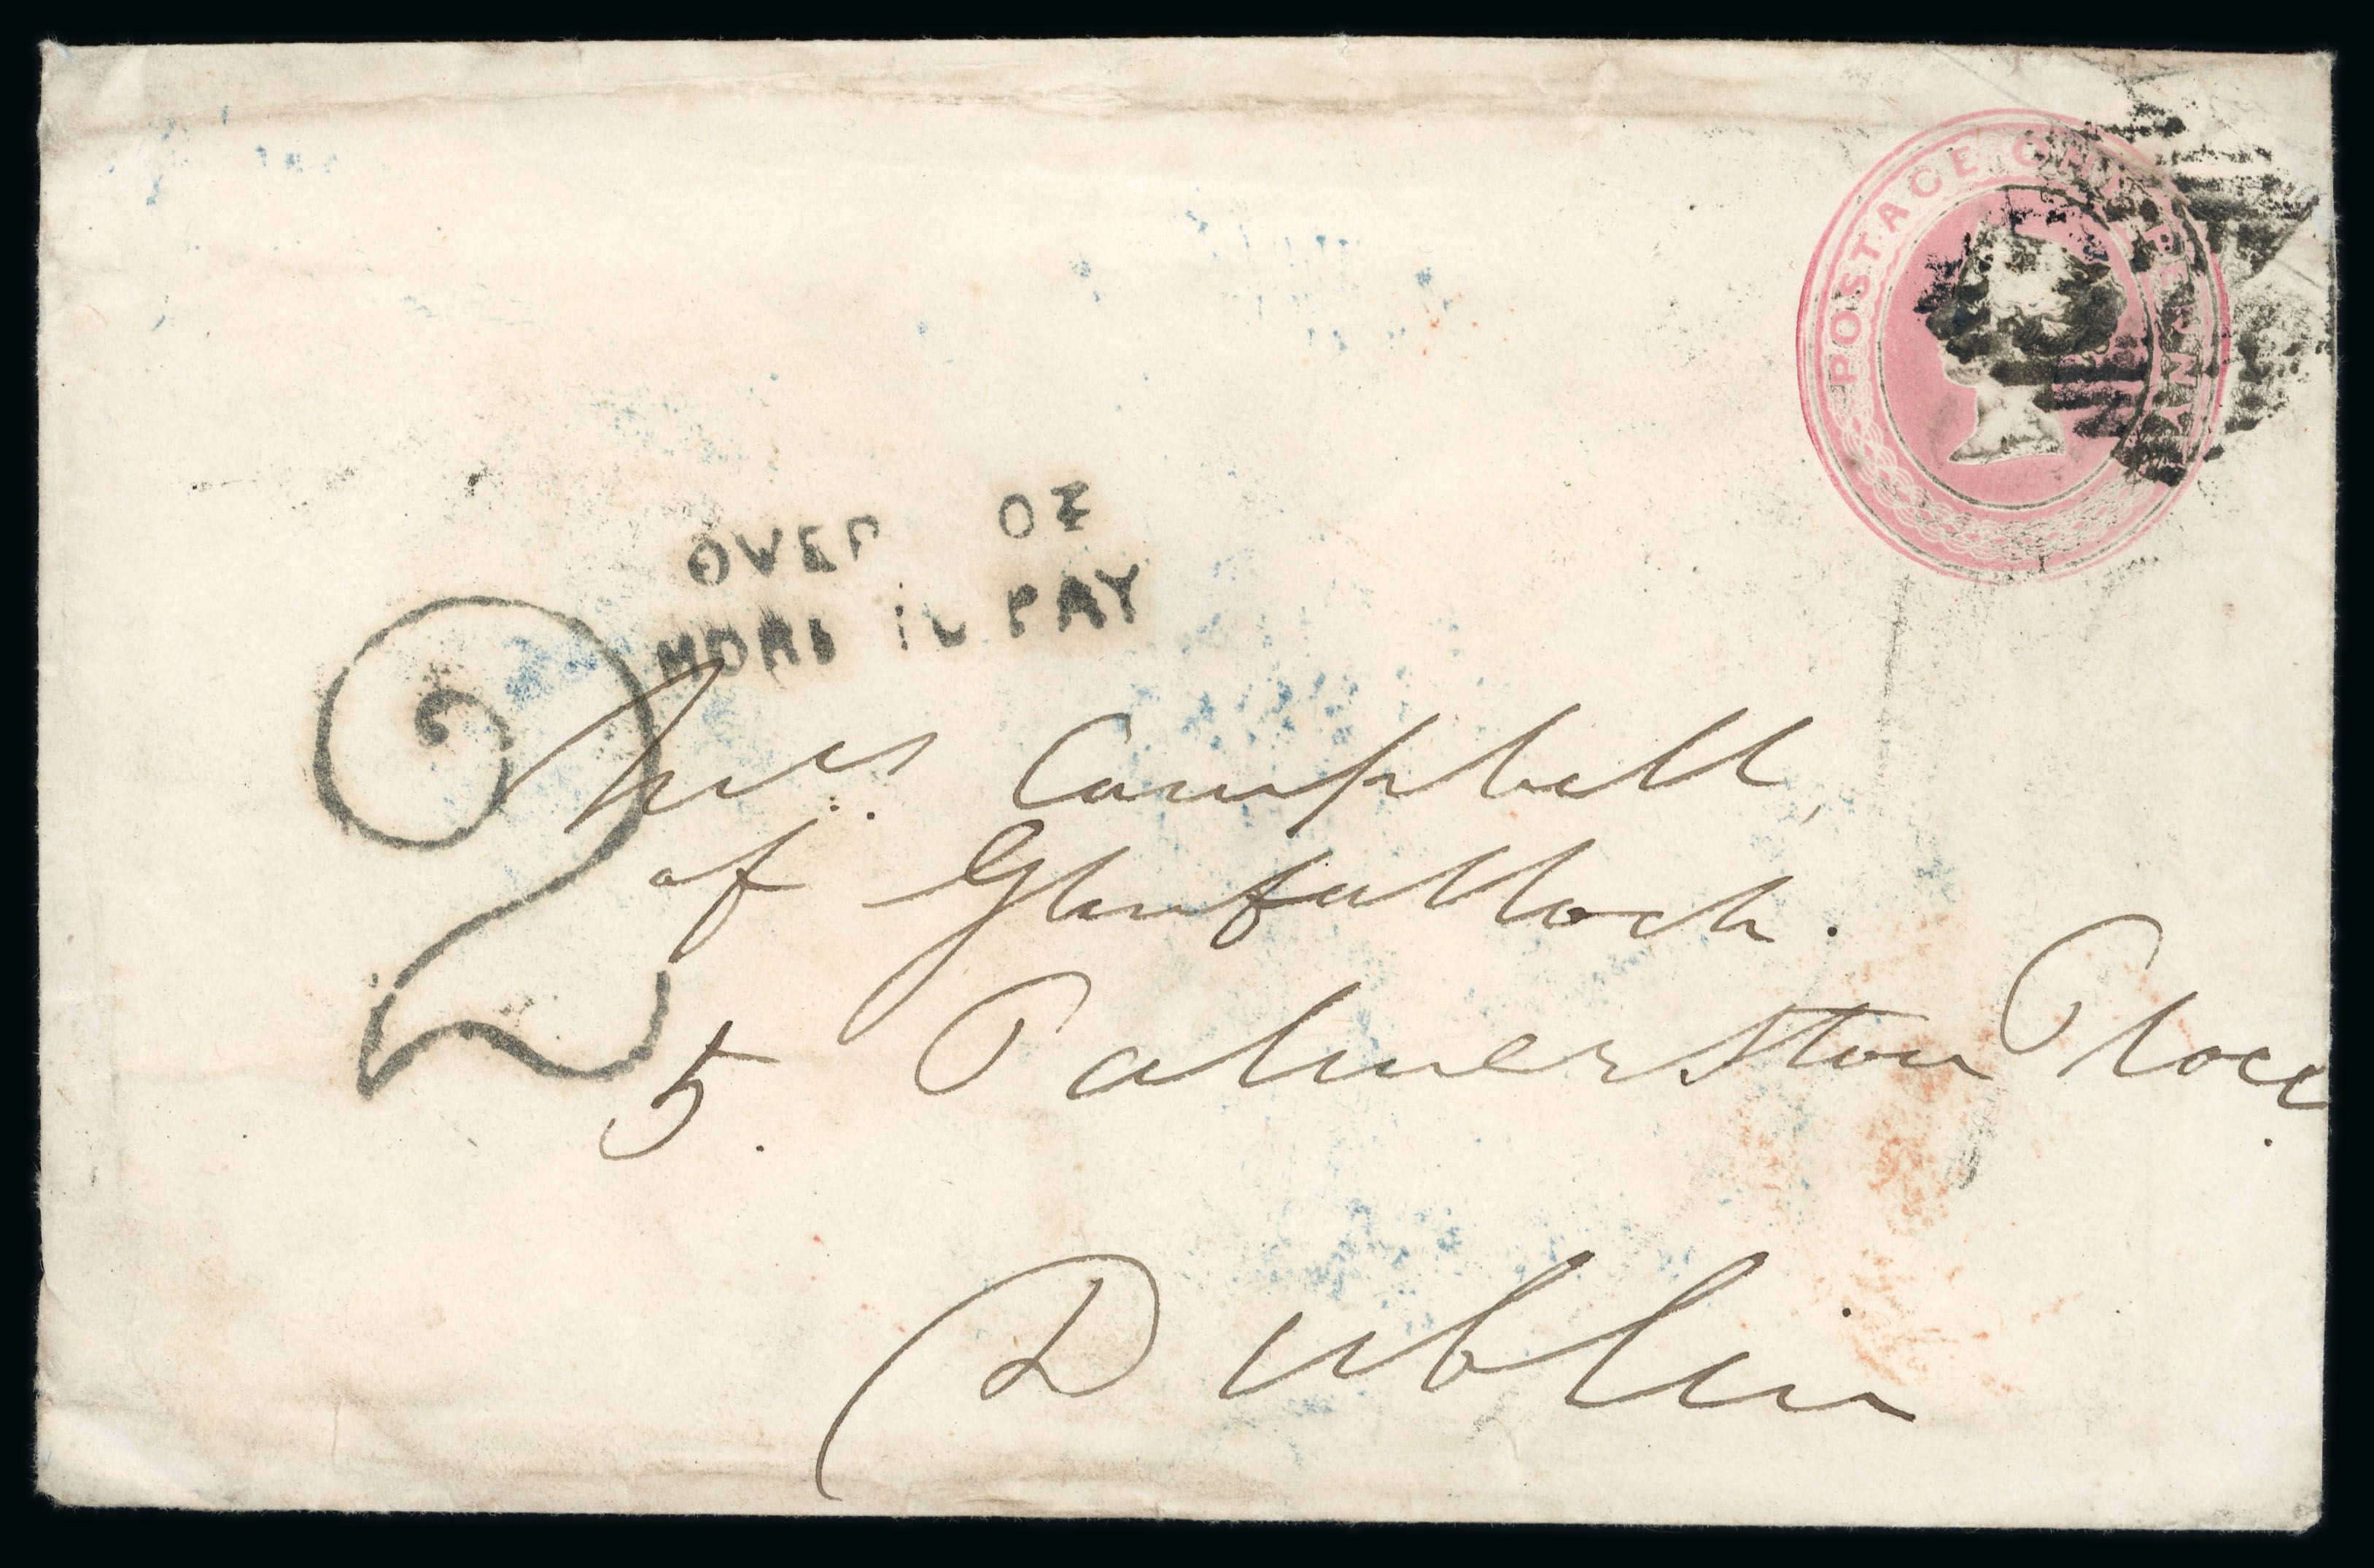 POSTAGE ONE PENNY
OVER OZ
MORE TO PAY
2
Mrs. Campbell,
of Glenfalloch.
5. Palmerston Place
Dublin